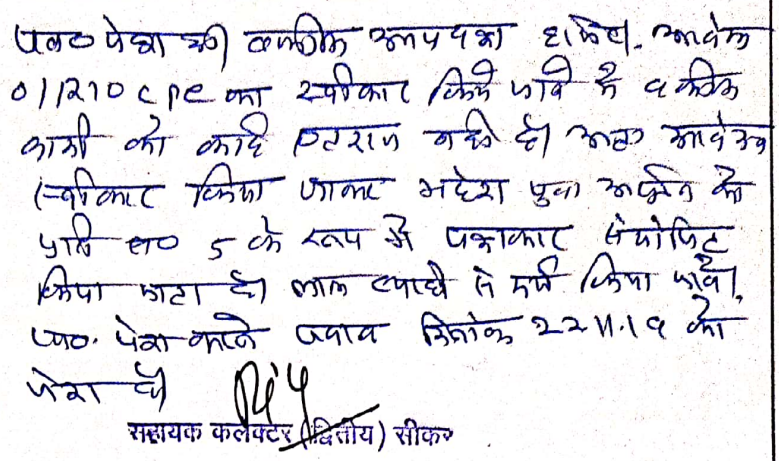 पत्र0 पेश की वकील अप्रपक्ष हाजिर. आवेदन
01/R10 CPC का स्वीकार किये जावे में वकील
वादी को कोई एतराज नही है। अतः आवेदन
स्वीकार किया जाकर महेश पुत्र अर्जुन को
प्रति स0 5 के रूप में पक्षकार संयोजित
किया जाता है। लाल स्याही से दर्ज किया जावे।
पत्रा. पेश करने जवाब दिनांक 22.11.19 को
पेश हो।
सहायक कलेक्टर (द्वितीय) सीकर